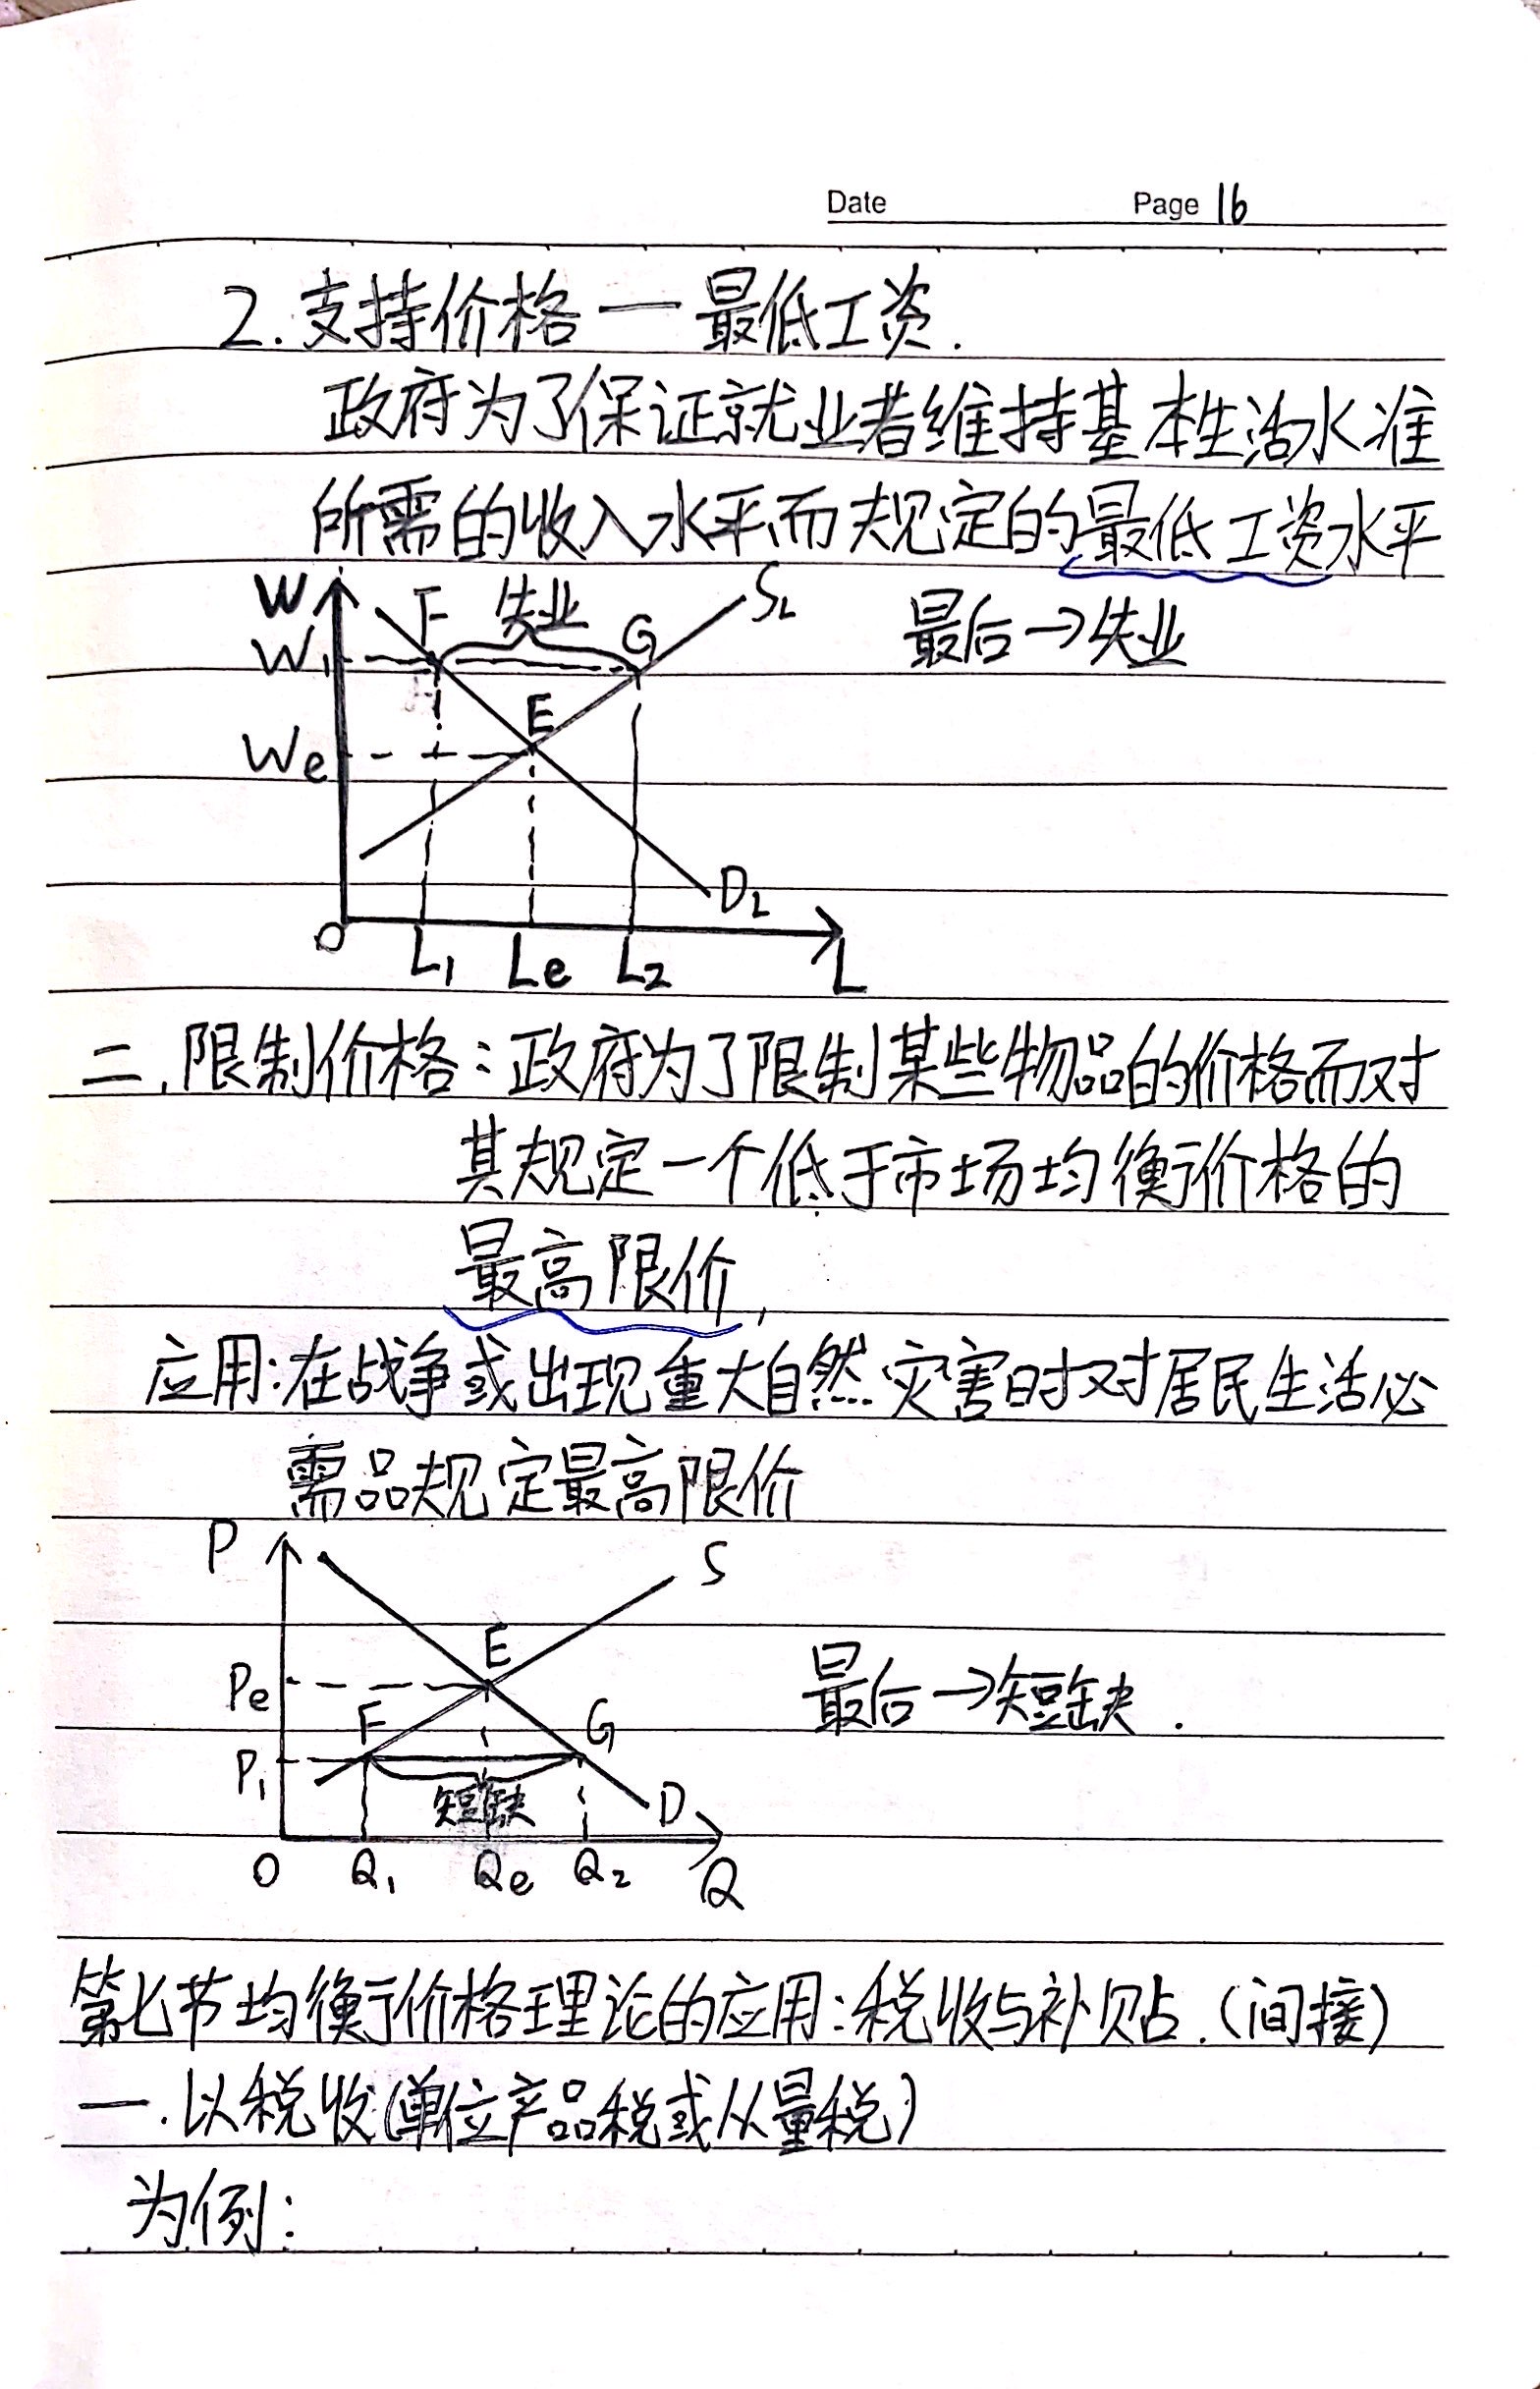 Date Page 16
2.支持价格一最低工资.
政府为了保证就业者维持基本生活水准
所需的收入水平而规定的最低工资水平
W F 失业 G SL
W1 最后→失业
E
We
DL
O L1 Le L2 L
二.限制价格:政府为了限制某些物品的价格而对
其规定一个低于市场均衡价格的
最高限价,
应用:在战争或出现重大自然灾害时对居民生活必
需品规定最高限价
P S
E
Pe 最后→短缺.
F G
P1
短缺 D
O Q1 Qe Q2 Q
第七节均衡价格理论的应用:税收与补贴.(间接)
一.以税收(单位产品税或从量税)
为例: